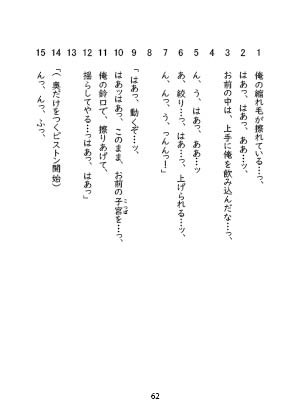 1 俺の縮れ毛が擦れている…っ、
2 はあっ、はあっ、ああ…ッ、
3 お前の中は、上手に俺を飲み込んだな…っ、
4
5 ん、う、はあっ、ああ…ッ
6 あ、絞り…っ、はあ…っ、上げられる…ッ、
7 ん、んっ、う、っんんっ!」
8
9 「はあっ、動くぞ…ッ、
10 はあッはあっ、このまま、お前の子宮を…っ、
こつぼ
11 俺の鈴口で、擦りあげて、
12 揺らしてやる…っはあっ、はあっ」
13
14 「(奥だけをつくピストン開始)
15 んっ、んっ、ふっ、
62